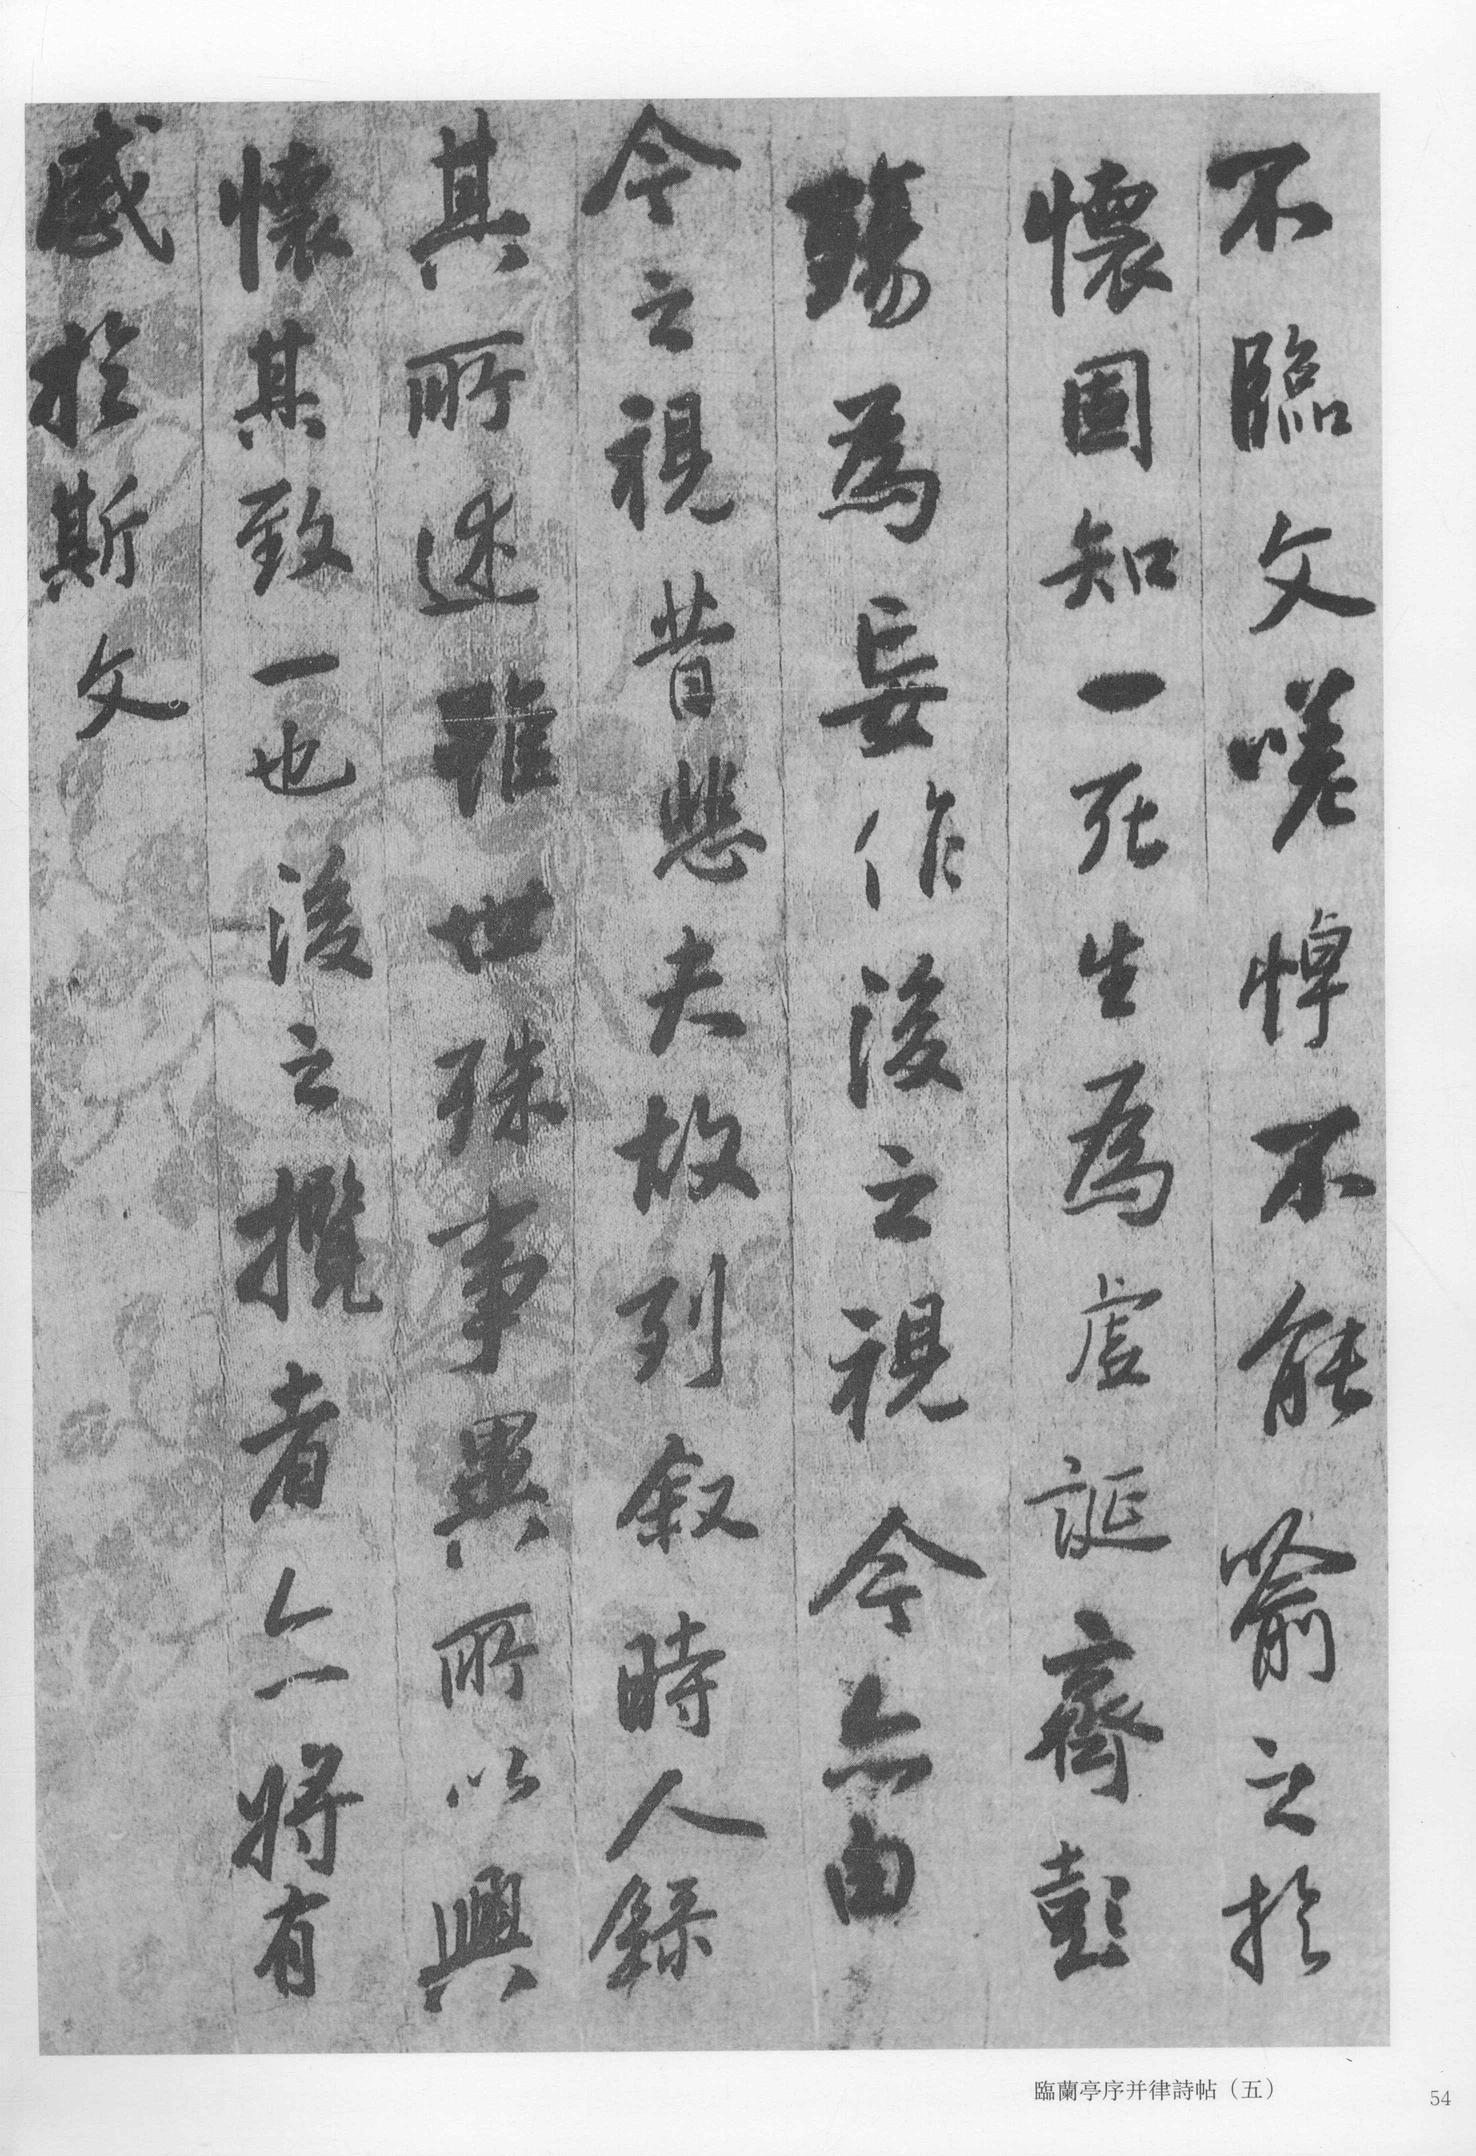 不臨文嗟悼不能喻之於
懷固知一死生為虛誕齊彭
殤為妄作後之視今亦由
今之視昔悲夫故列叙時人錄
其所述雖世殊事異所以興
懷其致一也後之攬者亦將有
感於斯文
臨蘭亭序并律詩帖（五）
54